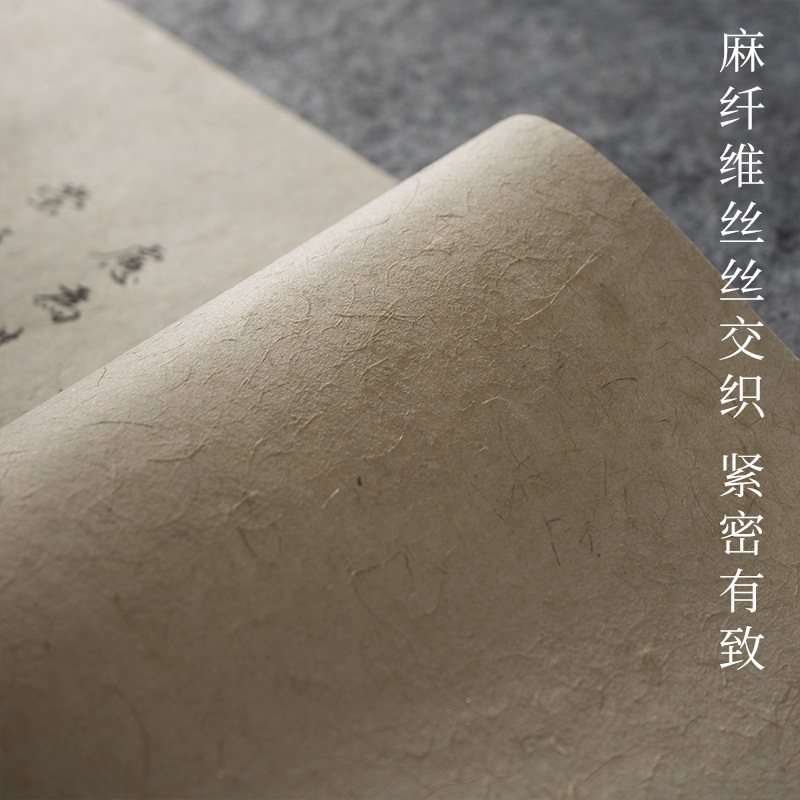 麻纤维丝丝交织 紧密有致